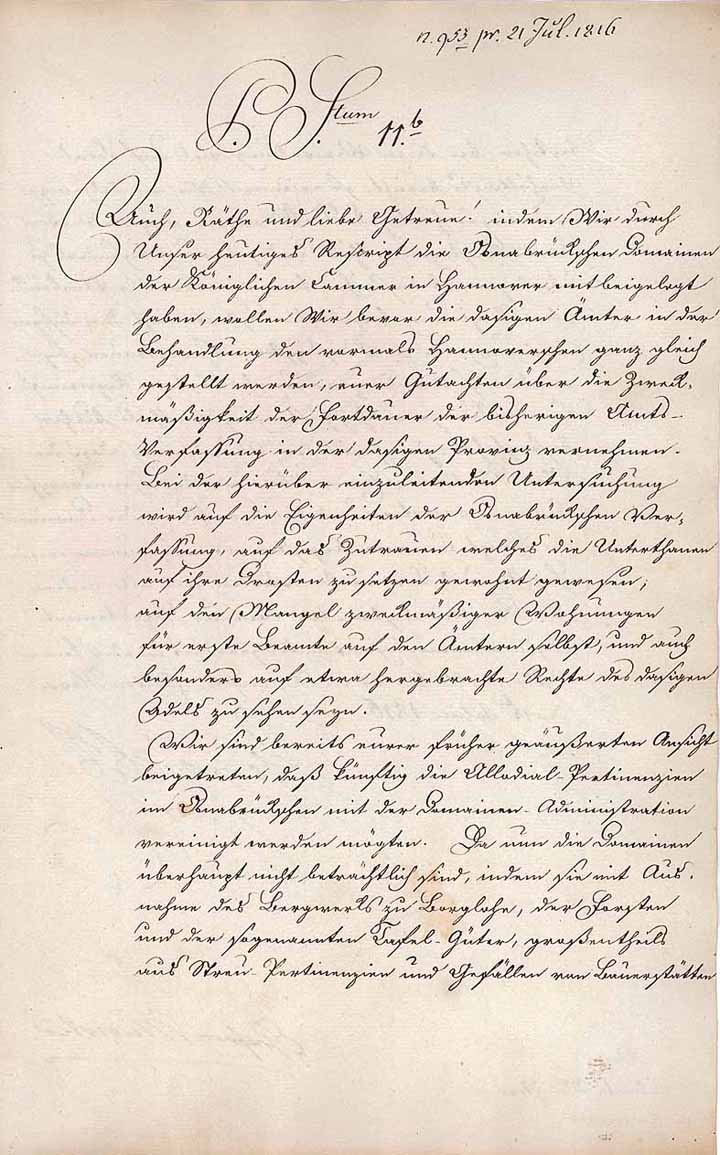 n. 953 pr. 21 Jul. 1816
P. S.tum
11.b
Auch, Räthe und liebe Getreue! indem Wir durch
Unser heutiges Rescript die Osnabrückschen Domainen
der Königlichen Cammer in Hannover mit beigelegt
haben, wollen Wir bevor die dasigen Ämter in der
Behandlung den vormals Hannoverschen ganz gleich
gestellt werden, euer Gutachten über die Zweck-
mäßigkeit der Fortdauer der bisherigen Amts-
Verfassung in der dasigen Provinz vernehmen.
Bei der hierüber einzuleitenden Untersuchung
wird auf die Eigenheiten der Osnabrückschen Ver-
fassung, auf das Zutrauen welches die Unterthanen
auf ihre Drosten zu setzen gewohnt gewesen,
auf den Mangel zweckmäßiger Wohnungen
für erste Beamte auf den Ämtern selbst, und auch
besonders auf etwa hergebrachte Rechte des dasigen
Adels zu sehen seyn.
Wir sind bereits eurer früher geäußerten Ansicht
beigetreten, daß künftig die Allodial-Pertinenzien
im Osnabrückschen mit der Domainen-Administration
vereinigt werden mögten. Da nun die Domainen
überhaupt nicht beträchtlich sind, indem sie mit Aus-
nahme des Bergwerks zu Borglohe, der Forsten
und der sogenannten Tafel-Güter, großentheils
aus Streu-Pertinenzien und Gefällen von Bauerstätten